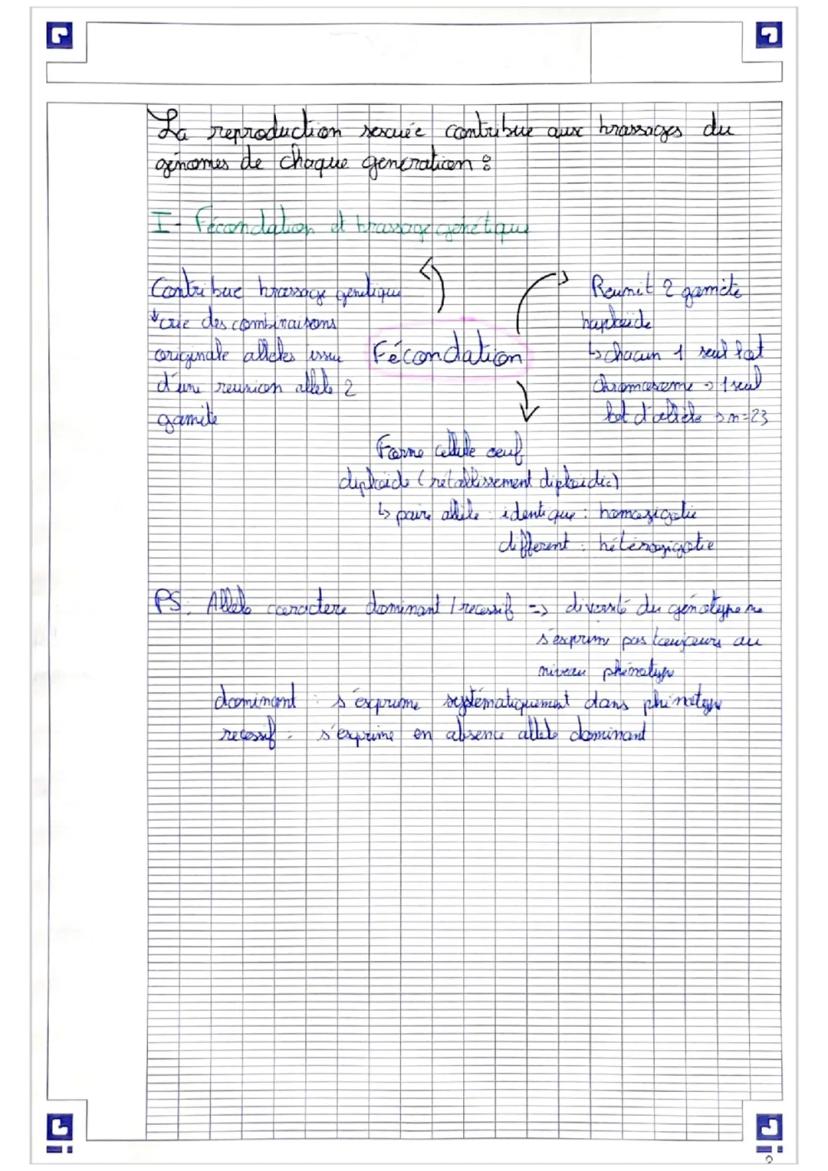 La reproduction sexuée contribue aux brassages du
génomes de chaque generation :
I - Fécondation et brassage génétique
Contribue brassage genetique
↓ crée des combinaisons
originale alleles issu
d'une reunion allele 2
gamete
Fécondation
Reunit 2 gamète
haploïde
↳ chacun 1 seul lot
chromosome → 1 seul
lot d'allèle → n=23
Forme cellule oeuf
diploide (rétablissement diploidie)
↳ paire allèle : identique : homozigotie
different : hétérozigotie
PS : Allele caractere dominant / recessif => diversité du génotype ne
s'exprime pas toujours au
niveau phénotype
dominant : s'exprime systématiquement dans phénotype
recessif : s'exprime en absence allele dominant